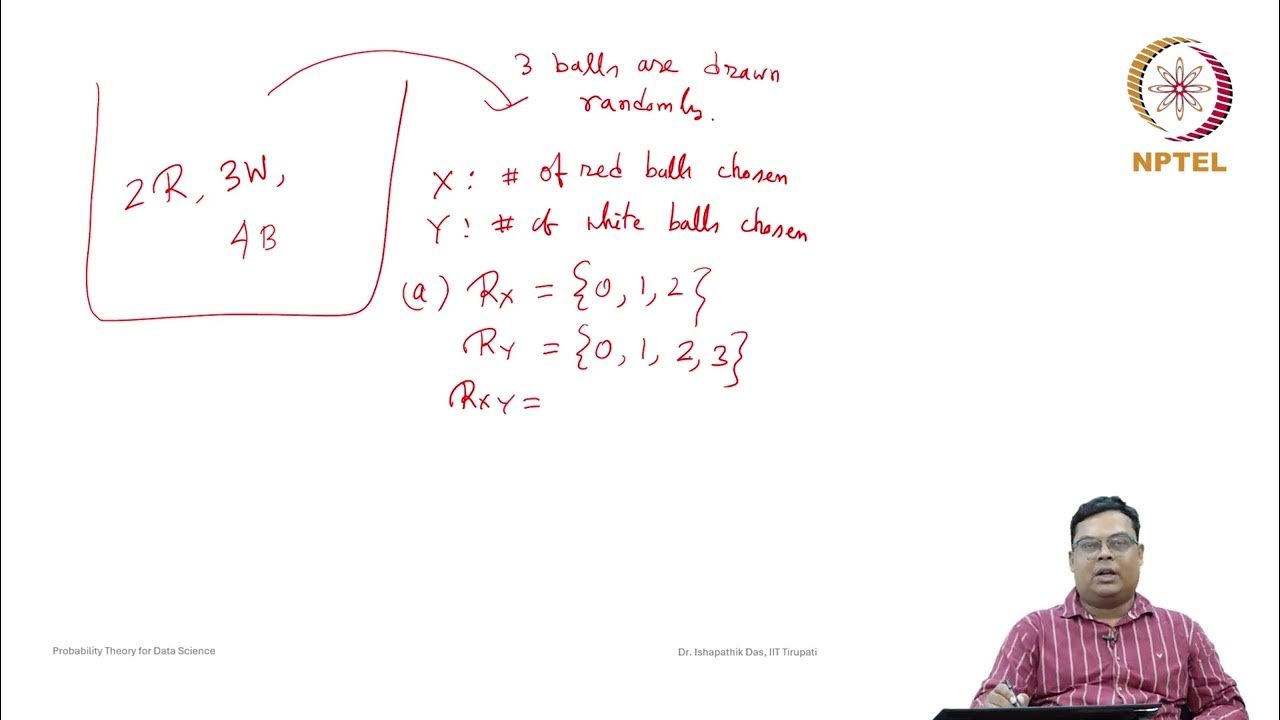 3 balls are drawn
randomly.
2R, 3W,
4B
X : # of red balls chosen
Y : # of white balls chosen
(a) R_X = {0, 1, 2}
R_Y = {0, 1, 2, 3}
R_XY =
NPTEL
Probability Theory for Data Science
Dr. Ishapathik Das, IIT Tirupati